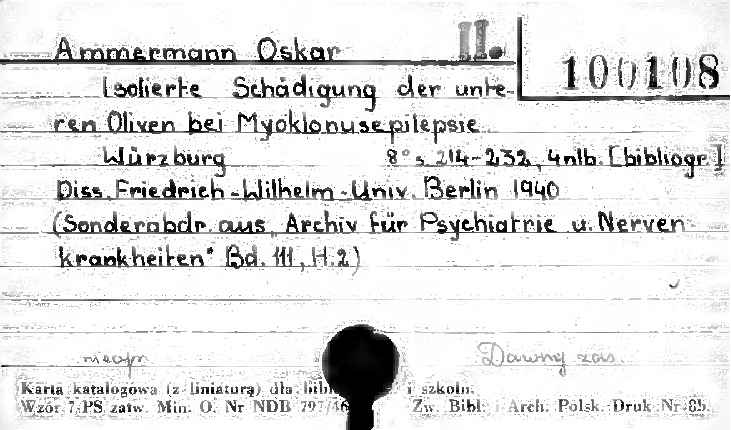 Ammermann Oskar II.
100108
Isolierte Schädigung der unte-
ren Oliven bei Myoklonusepilepsie
Würzburg 8° s. 214-232, 4 nlb. [bibliogr.]
Diss. Friedrich-Wilhelm-Univ. Berlin 1940
(Sonderabdr. aus „Archiv für Psychiatrie u. Nerven-
krankheiten" Bd. 111, H. 2)
Dawny zas.
Karta katalogowa (z liniaturą) dla i szkoln.
Wzór 7/PS zatw. Min. O. Nr NDB 797/46 Zw. Bibl. i Arch. Polsk. Druk Nr 85.